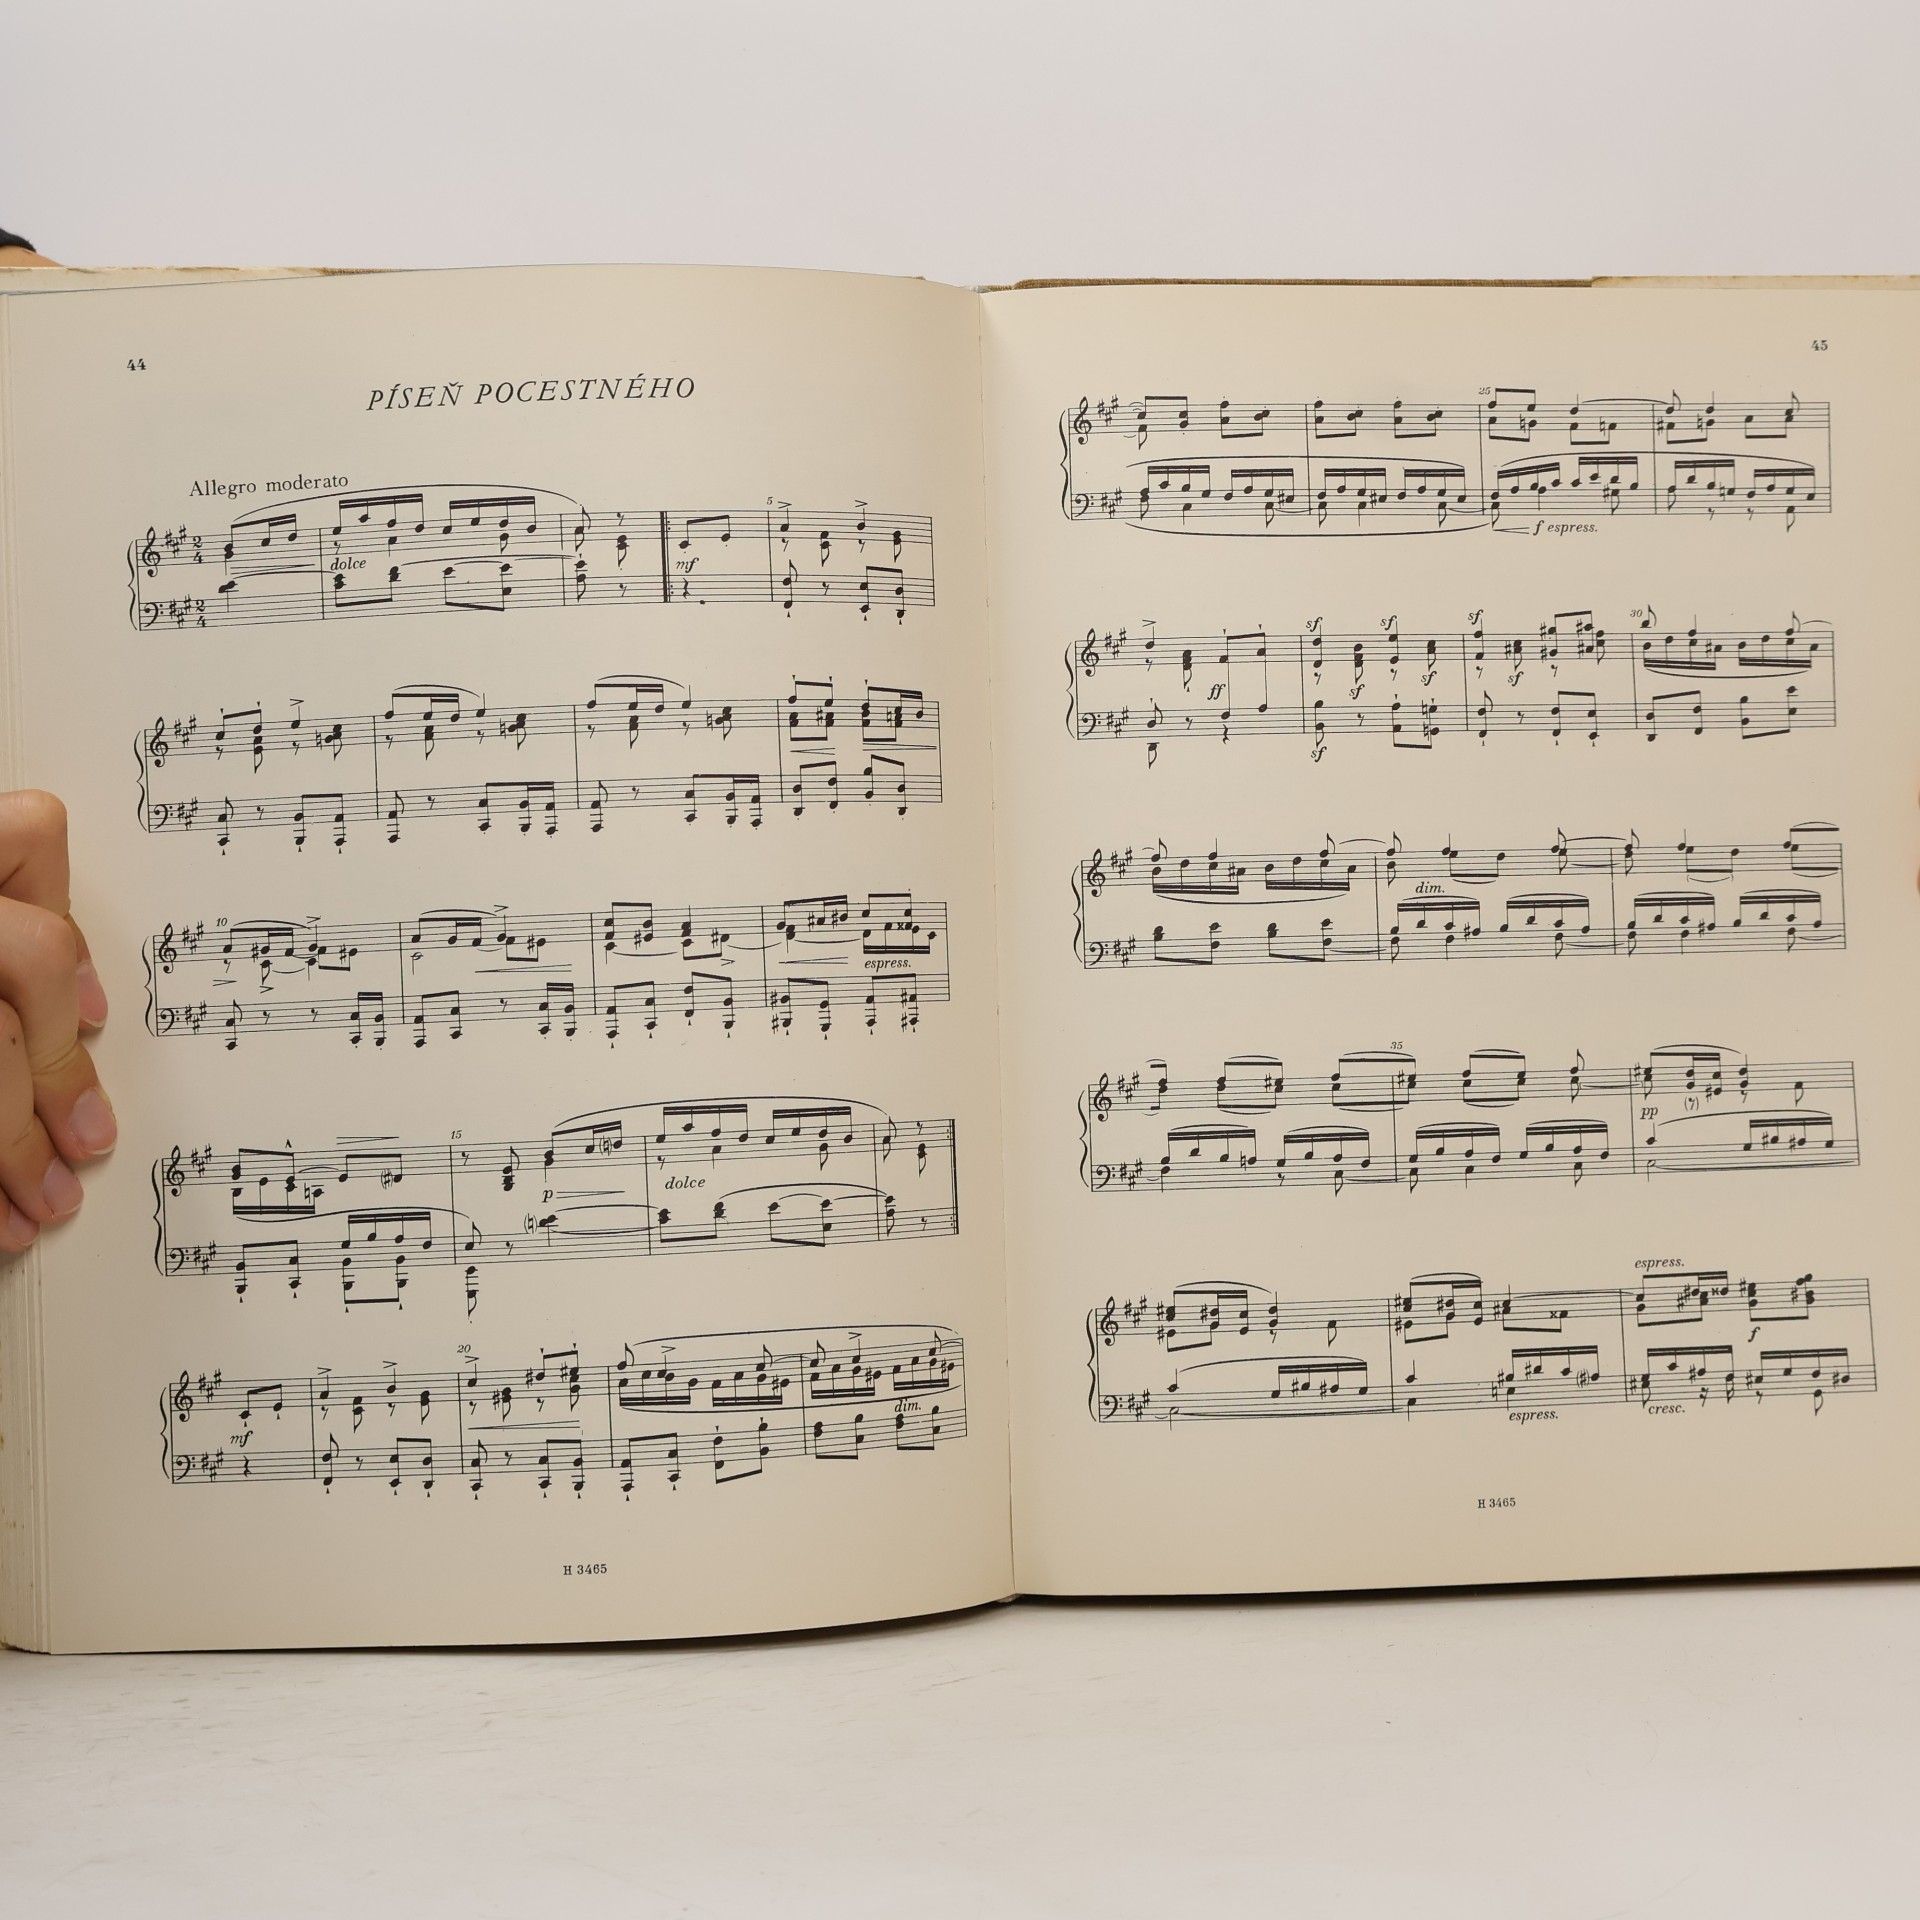 44
PÍSEŇ POCESTNÉHO
Allegro moderato
5
2 4
dolce
mf
2 4
10
espress.
15
p
dolce
20
mf
dim.
H 3465
45
25
f espress.
30
sf sf sf
ff sf sf sf
sf
dim.
35
pp
espress.
f
espress. cresc.
H 3465